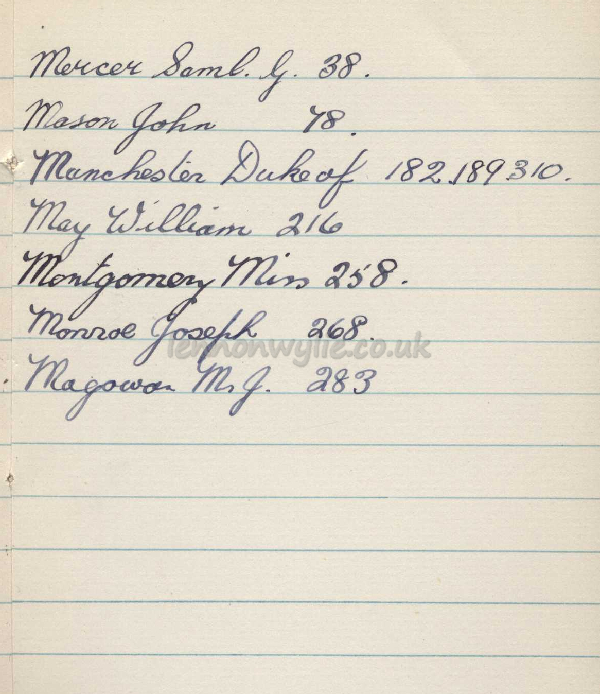 Mercer Saml. G. 38.
Mason John 78.
Manchester Duke of 182.189.310.
May William 216
Montgomery Miss 258.
Monroe Joseph 268.
lennonwylie.co.uk
Magowan M. J. 283